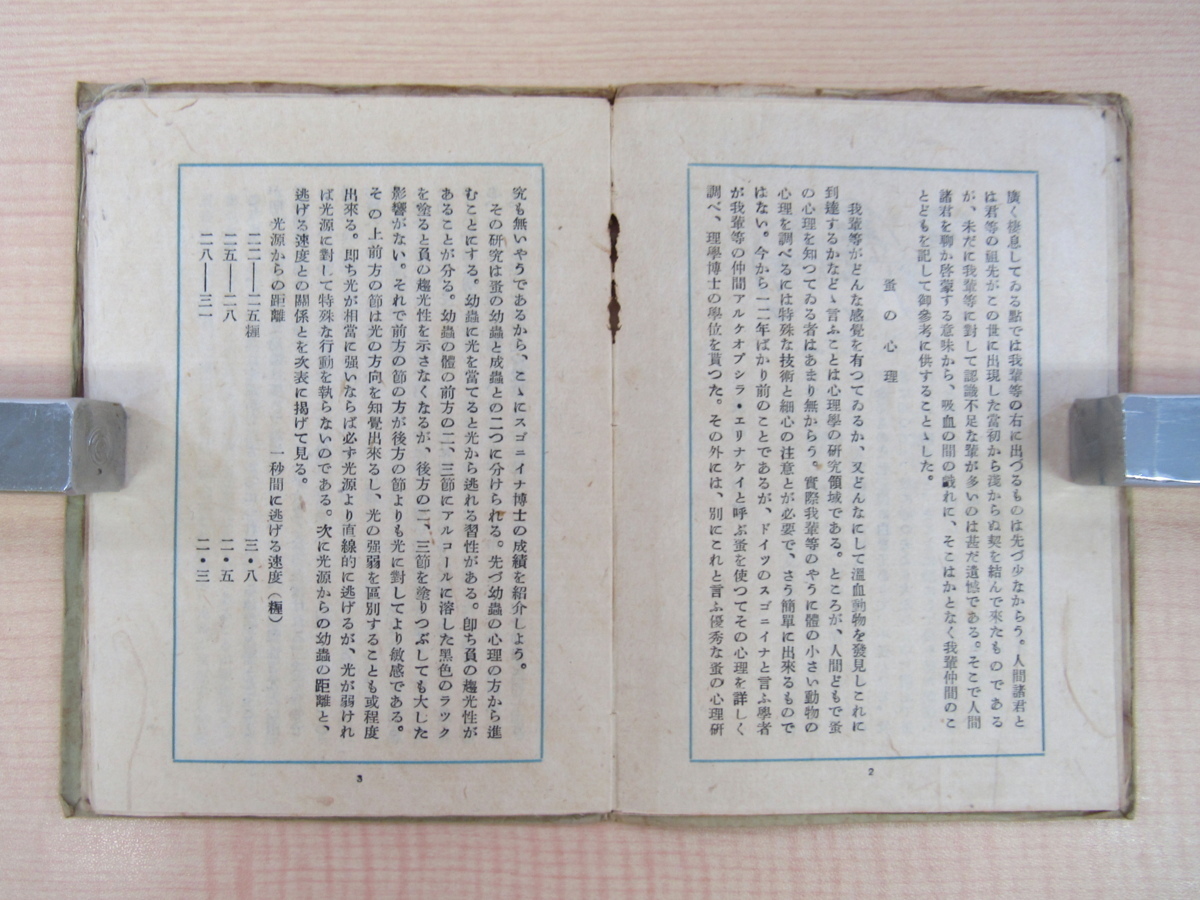 廣く棲息してゐる點では我輩等の右に出づるものは先づ少なからう。人間諸君と
は君等の祖先がこの世に出現した當初から淺からぬ契を結んで來たものである
が、未だに我輩等に對して認識不足な輩が多いのは甚だ遺憾である。そこで人間
諸君を聊か啓蒙する意味から、吸血の間の戯れに、そこはかとなく我輩仲間のこ
とどもを記して御參考に供することゝした。
蚤の心理
我輩等がどんな感覺を有つてゐるか、又どんなにして溫血動物を發見しこれに
到達するかなどゝ言ふことは心理學の研究領域である。ところが、人間どもで蚤
の心理を知つてゐる者はあまり無からう。實際我輩等のやうに體の小さい動物の
心理を調べるには特殊な技術と細心の注意とが必要で、さう簡單に出來るもので
はない。今から一二年ばかり前のことであるが、ドイツのスゴニイナと言ふ學者
が我輩等の仲間アルケオプシラ・エリナケイと呼ぶ蚤を使つてその心理を詳しく
調べ、理學博士の學位を貰つた。その外には、別にこれと言ふ優秀な蚤の心理研
2
究も無いやうであるから、こゝにスゴニイナ博士の成績を紹介しよう。
その研究は蚤の幼蟲と成蟲との二つに分けられる。先づ幼蟲の心理の方から進
むことにする。幼蟲に光を當てると光から逃れる習性がある。卽ち負の趨光性が
あることが分る。幼蟲の體の前方の二、三節にアルコールに溶した黑色のラック
を塗ると負の趨光性を示さなくなるが、後方の二、三節を塗りつぶしても大した
影響がない。それで前方の節の方が後方の節よりも光に對してより敏感である。
その上前方の節は光の方向を知覺出來るし、光の强弱を區別することも或程度
出來る。卽ち光が相當に强いならば必ず光源より直線的に逃げるが、光が弱けれ
ば光源に對して特殊な行動を執らないのである。次に光源からの幼蟲の距離と、
逃げる速度との關係とを次表に揭げて見る。
光源からの距離　一秒間に逃げる速度（糎）
二二――二五糎　三・八
二五――二八　二・五
二八――三一　二・三
3